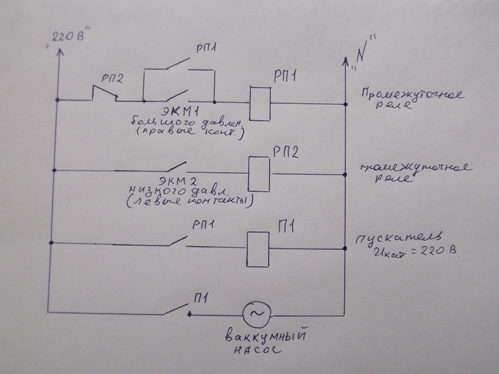 „220 В"
"N"
РП1
РП2
РП1
Промежуточное
реле
ЭКМ1
большого давлен.
(правые конт.)
РП2
промежуточное
реле
ЭКМ2
низкого давл.
(левые контакты)
РП1
П1
Пускатель
Uкат = 220 В.
П1
ваккумный
насос